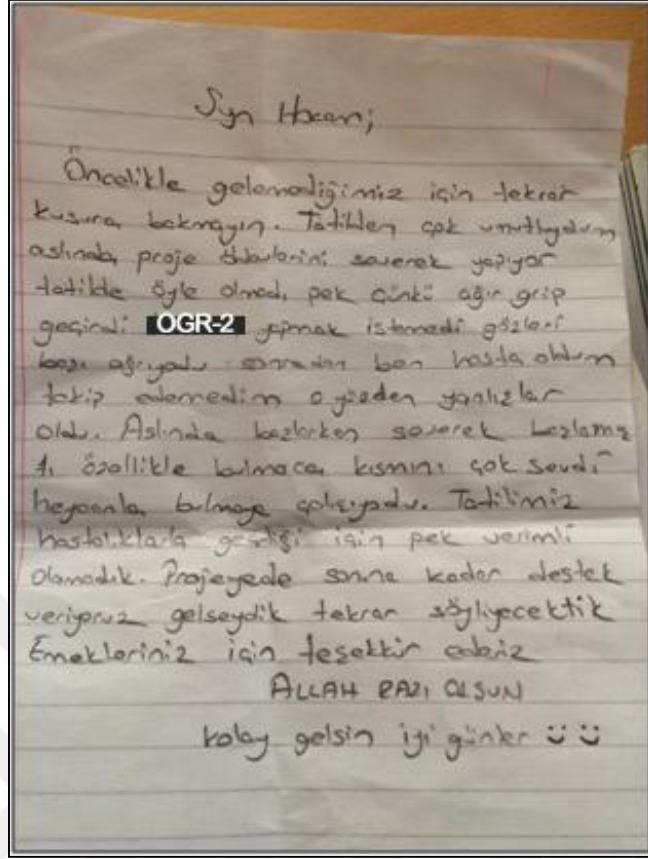 Syn Hocam;
Öncelikle gelemediğimiz için tekrar
kusura bakmayın. Tatilden çok umutluydum
aslında, proje ödevlerini severek yapıyor
tatilde öyle olmadı, pek çünkü ağır grip
geçirdi OGR-2 yapmak istemedi gözleri
başı ağrıyodu sonradan ben hasta oldum
takip edemedim o yüzden yanlızlar
oldu. Aslında başlarken severek başlamış
tı özellikle bulmaca kısmını çok sevdi
heycanla bulmaya çalışıyodu. Tatilimiz
hastalıklarla geçdiği için pek verimli
olamadık. Projeyede sonuna kadar destek
veriyoruz gelseydik tekrar söyliyecektik
Emekleriniz için teşekkür ederiz
ALLAH RAZI OLSUN
kolay gelsin iyi günler